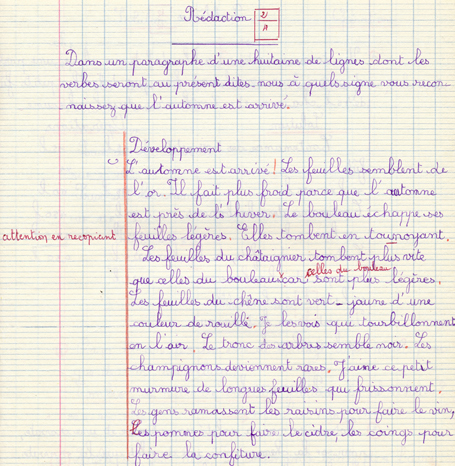 Rédaction
2/A
Dans un paragraphe d'une huitaine de lignes dont les
verbes seront au présent dites-nous à quels signe vous recon-
naissez que l'automne est arrivé.
Développement
L'automne est arrivé! Les feuilles semblent de
l'or. Il fait plus froid parce que l'automne
est près de l'hiver. Le bouleau échappe ses
attention en recopiant
feuilles légères. Elles tombent en tournoyant.
Les feuilles du châtaignier tombent plus vite
celles du bouleau
que celles du bouleau car sont plus légères.
Les feuilles du chêne sont vert-jaune d'une
couleur de rouille. Je les vois qui tourbillonnent
en l'air. Le tronc des arbres semble noir. Les
champignons deviennent rares. J'aime ce petit
murmure de longues feuilles qui frissonnent.
Les gens ramassent les raisins pour faire le vin,
les pommes pour faire le cidre, les coings pour
faire la confiture.